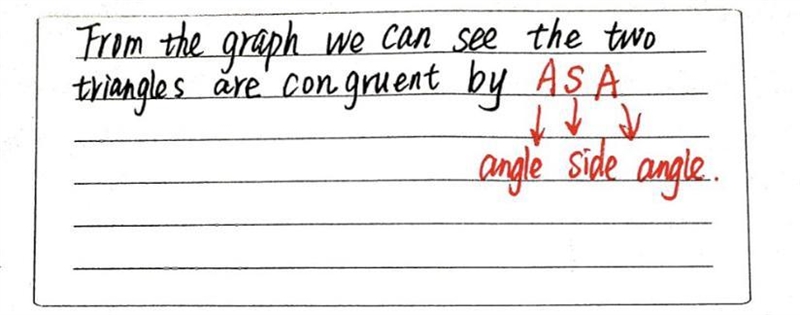 From the graph we can see the two
triangles are congruent by ASA
angle side angle.